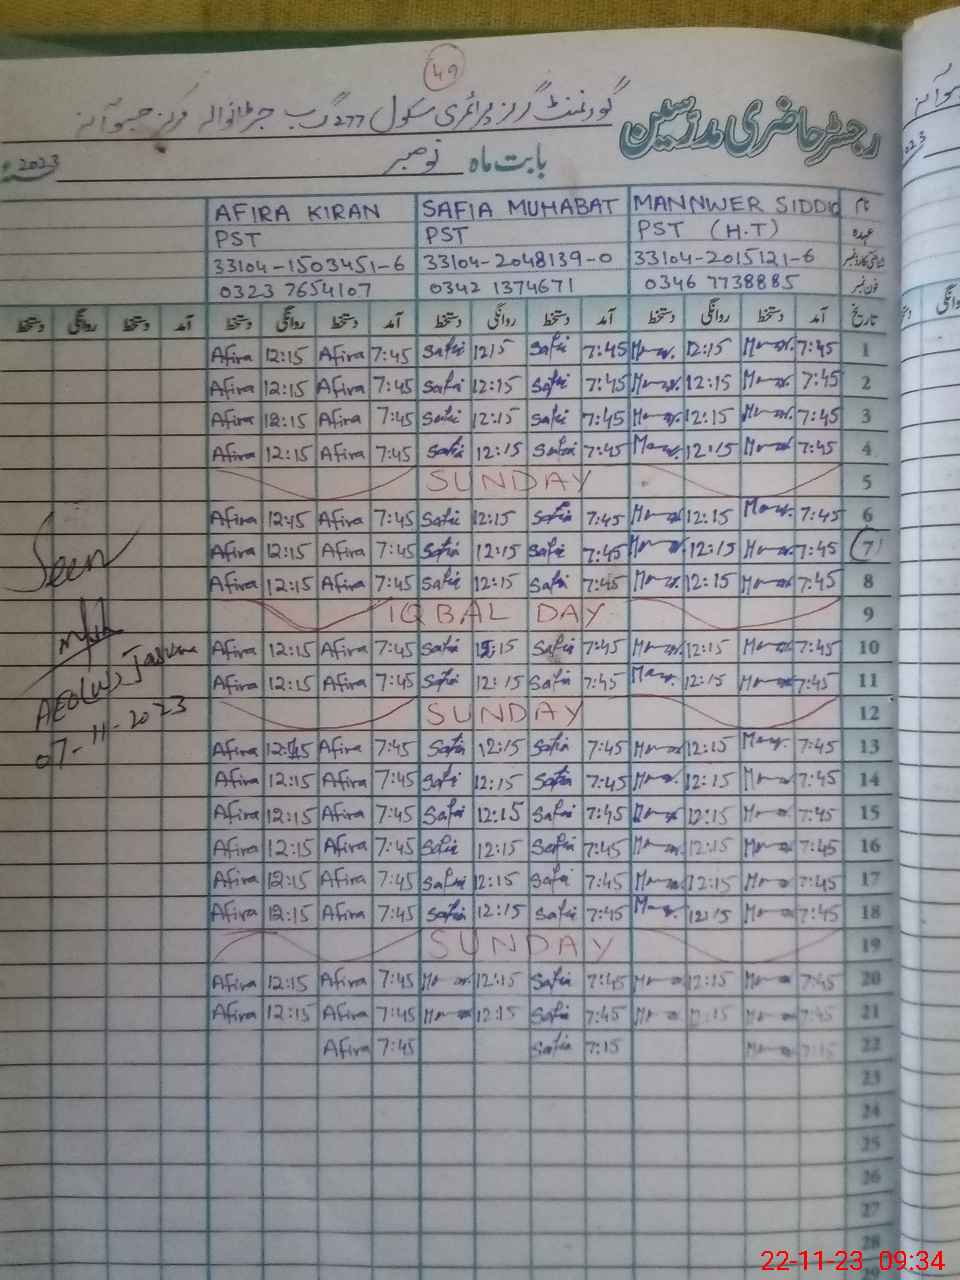 49
رجسٹر حاضری مدرسین گورنمنٹ گرلز پرائمری سکول 277 گ ب جڑانوالہ مرکز
بابت ماہ نومبر 2023
نام MANNWER SIDDIQ SAFIA MUHABAT AFIRA KIRAN
عہدہ PST (H.T) PST PST
شناختی کارڈ نمبر 33104-2015121-6 33104-2048139-0 33104-1503451-6
فون نمبر 0346 7738885 0342 1374671 0323 7654107
تاریخ آمد دستخط روانگی دستخط آمد دستخط روانگی دستخط آمد دستخط روانگی دستخط آمد دستخط روانگی دستخط
1 7:45 12:15 7:45 Safia 1215 Safia 7:45 Afira 12:15 Afira
2 7:45 12:15 7:45 Safia 12:15 Safia 7:45 Afira 12:15 Afira
3 7:45 12:15 7:45 Safia 12:15 Safia 7:45 Afira 12:15 Afira
4 7:45 12:15 7:45 Safia 12:15 Safia 7:45 Afira 12:15 Afira
5 SUNDAY
6 7:45 12:15 7:45 Safia 12:15 Safia 7:45 Afira 12:15 Afira
7 7:45 12:15 7:45 Safia 12:15 Safia 7:45 Afira 12:15 Afira
8 7:45 12:15 7:45 Safia 12:15 Safia 7:45 Afira 12:15 Afira
9 IQBAL DAY
10 7:45 12:15 7:45 Safia 12:15 Safia 7:45 Afira 12:15 Afira
11 7:45 12:15 7:45 Safia 12:15 Safia 7:45 Afira 12:15 Afira
12 SUNDAY
13 7:45 12:15 7:45 Safia 12:15 Safia 7:45 Afira 12:15 Afira
14 7:45 12:15 7:45 Safia 12:15 Safia 7:45 Afira 12:15 Afira
15 7:45 12:15 7:45 Safia 12:15 Safia 7:45 Afira 12:15 Afira
16 7:45 12:15 7:45 Safia 12:15 Safia 7:45 Afira 12:15 Afira
17 7:45 12:15 7:45 Safia 12:15 Safia 7:45 Afira 12:15 Afira
18 7:45 12:15 7:45 Safia 12:15 Safia 7:45 Afira 12:15 Afira
19 SUNDAY
20 7:45 12:15 7:45 Safia 12:15 7:45 Afira 12:15 Afira
21 7:45 12:15 7:45 Safia 12:15 7:45 Afira 12:15 Afira
22 7:15 7:15 Safia 7:45 Afira
23
24
25
26
27
28
29
Seen
AEO(W)
07-11-2023
22-11-23 09:34